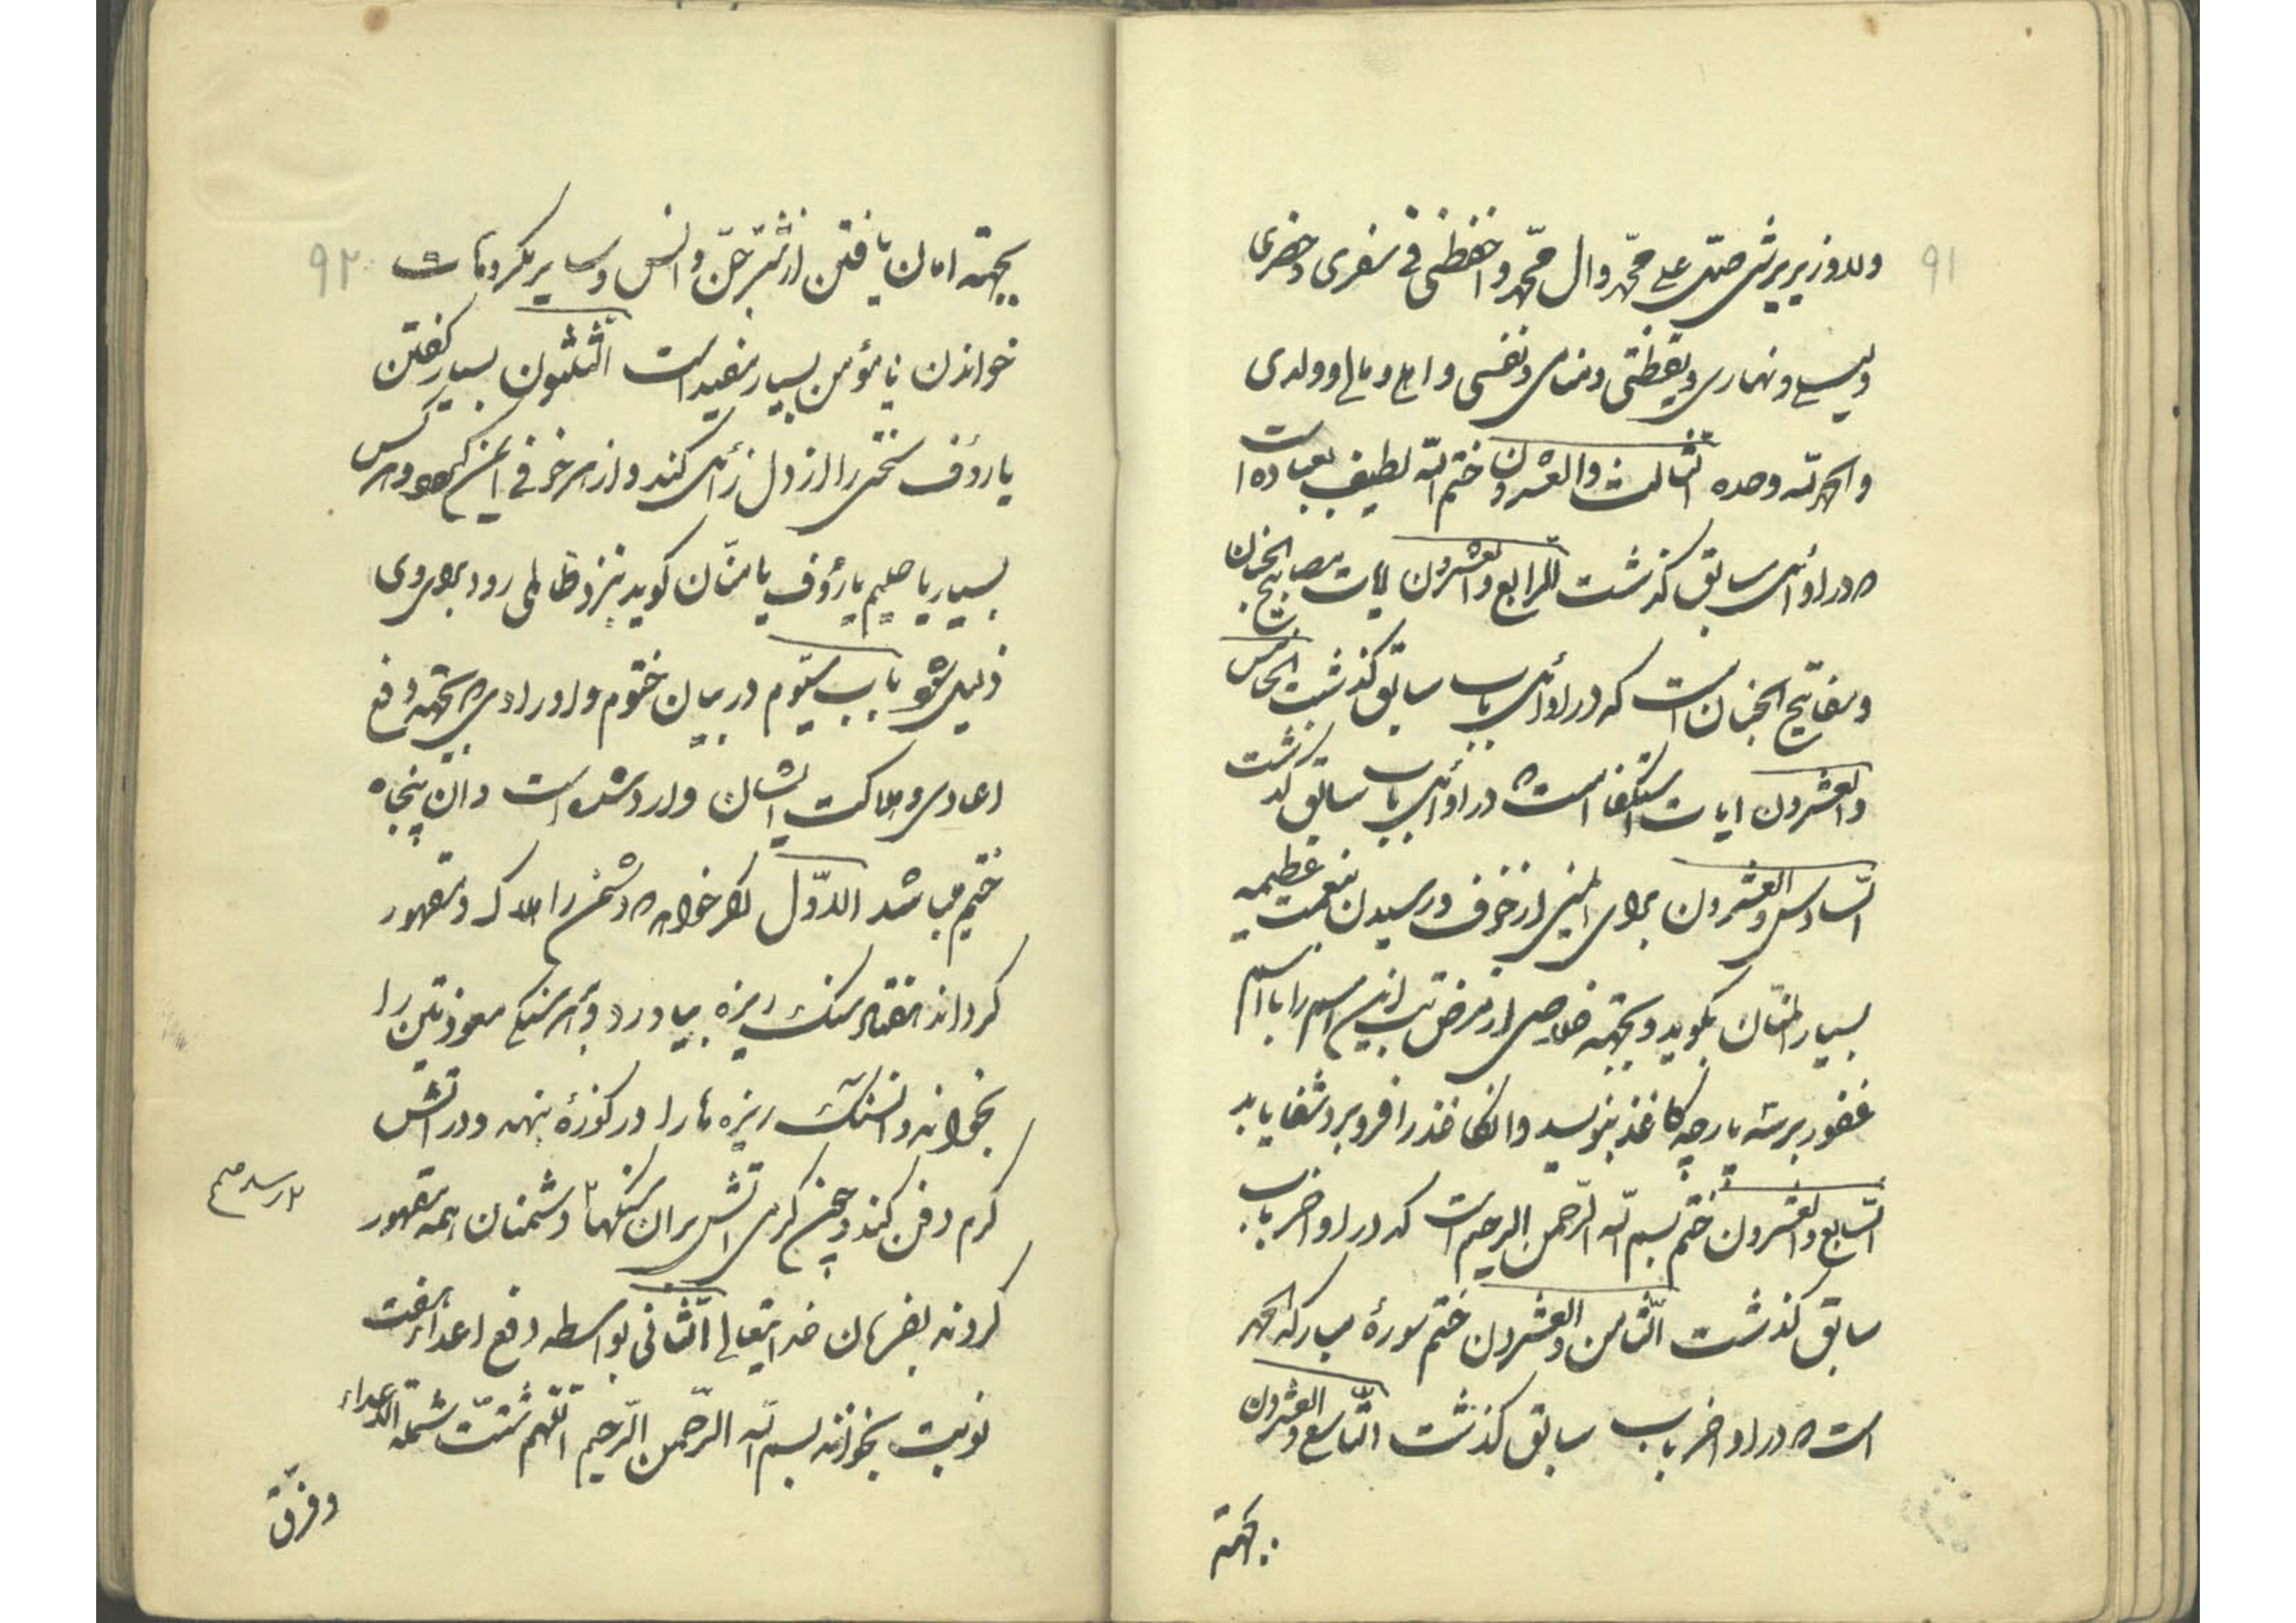 ۹۱
ولا وزیر یرشی صل علی محمد وال محمد واحفظنی فی سفری وحضری
ولیلی ونهاری ویقظتی ومنامی ونفسی واهلی ومالی وولدی
والحمد لله وحده الثالث والعشرون ختم الله لطیف بعباده است
که در اوائل سابق کذشت الرابع والعشرون ایات مصابیح الجنان
ومفاتیح الجنان است که در اوائل باب سابق کذشت الخامس
والعشرون ایات استکفا است که در اوائل باب سابق کذشت
السادس والعشرون برای ایمنی از خوف ورسیدن بنعمت عظیمه
بسیار المنان بکوید وبجهته خلاصی از مرض تب این اسم را با اسم
غفور بر سه پارچه کاغذ بنویسد وانکاغذ را فرو برد شفا یابد
السابع والعشرون ختم بسم الله الرحمن الرحیم است که در اواخر باب
سابق کذشت الثامن والعشرون ختم سورۀ مبارکه الحمد
است که در اواخر باب سابق کذشت التاسع والعشرون
بجهته
۹۲
بجهته امان یافتن از شر جن وانس وسایر مکروهات
خواندن یا مؤمن بسیار مفید است الثلثون بسیار کفتن
یا رؤف سختی را از دل زائل کند واز هر خوفی ایمن کردد وهر کس
بسیار یا حلیم یا رؤف یا منان کوید نزد ظالمی رود برای وی
ذلیل شود باب سیوم در بیان ختوم واورادی که بجهته دفع
اعادی وهلاکت ایشان وارد شده است وان پنجاه
ختم میباشد الاول اکر خواهد که دشمن را هلاک ومقهور
کرداند هفتاد سنک ریزه بیاورد وبر هر سنکی معوذتین را
بخواند وانسنک ریزه ها را در کوزۀ بنهد ودر اتش
کرم دفن کند وچون کرمی اتش بران سنکها دشمنان همه مقهور
برسد صح
کردند بفرمان خدایتعالی الثانی بواسطه دفع اعدا هفت
نوبت بخوانند بسم الله الرحمن الرحیم اللهم شتت شمل الاعداء
وفرق